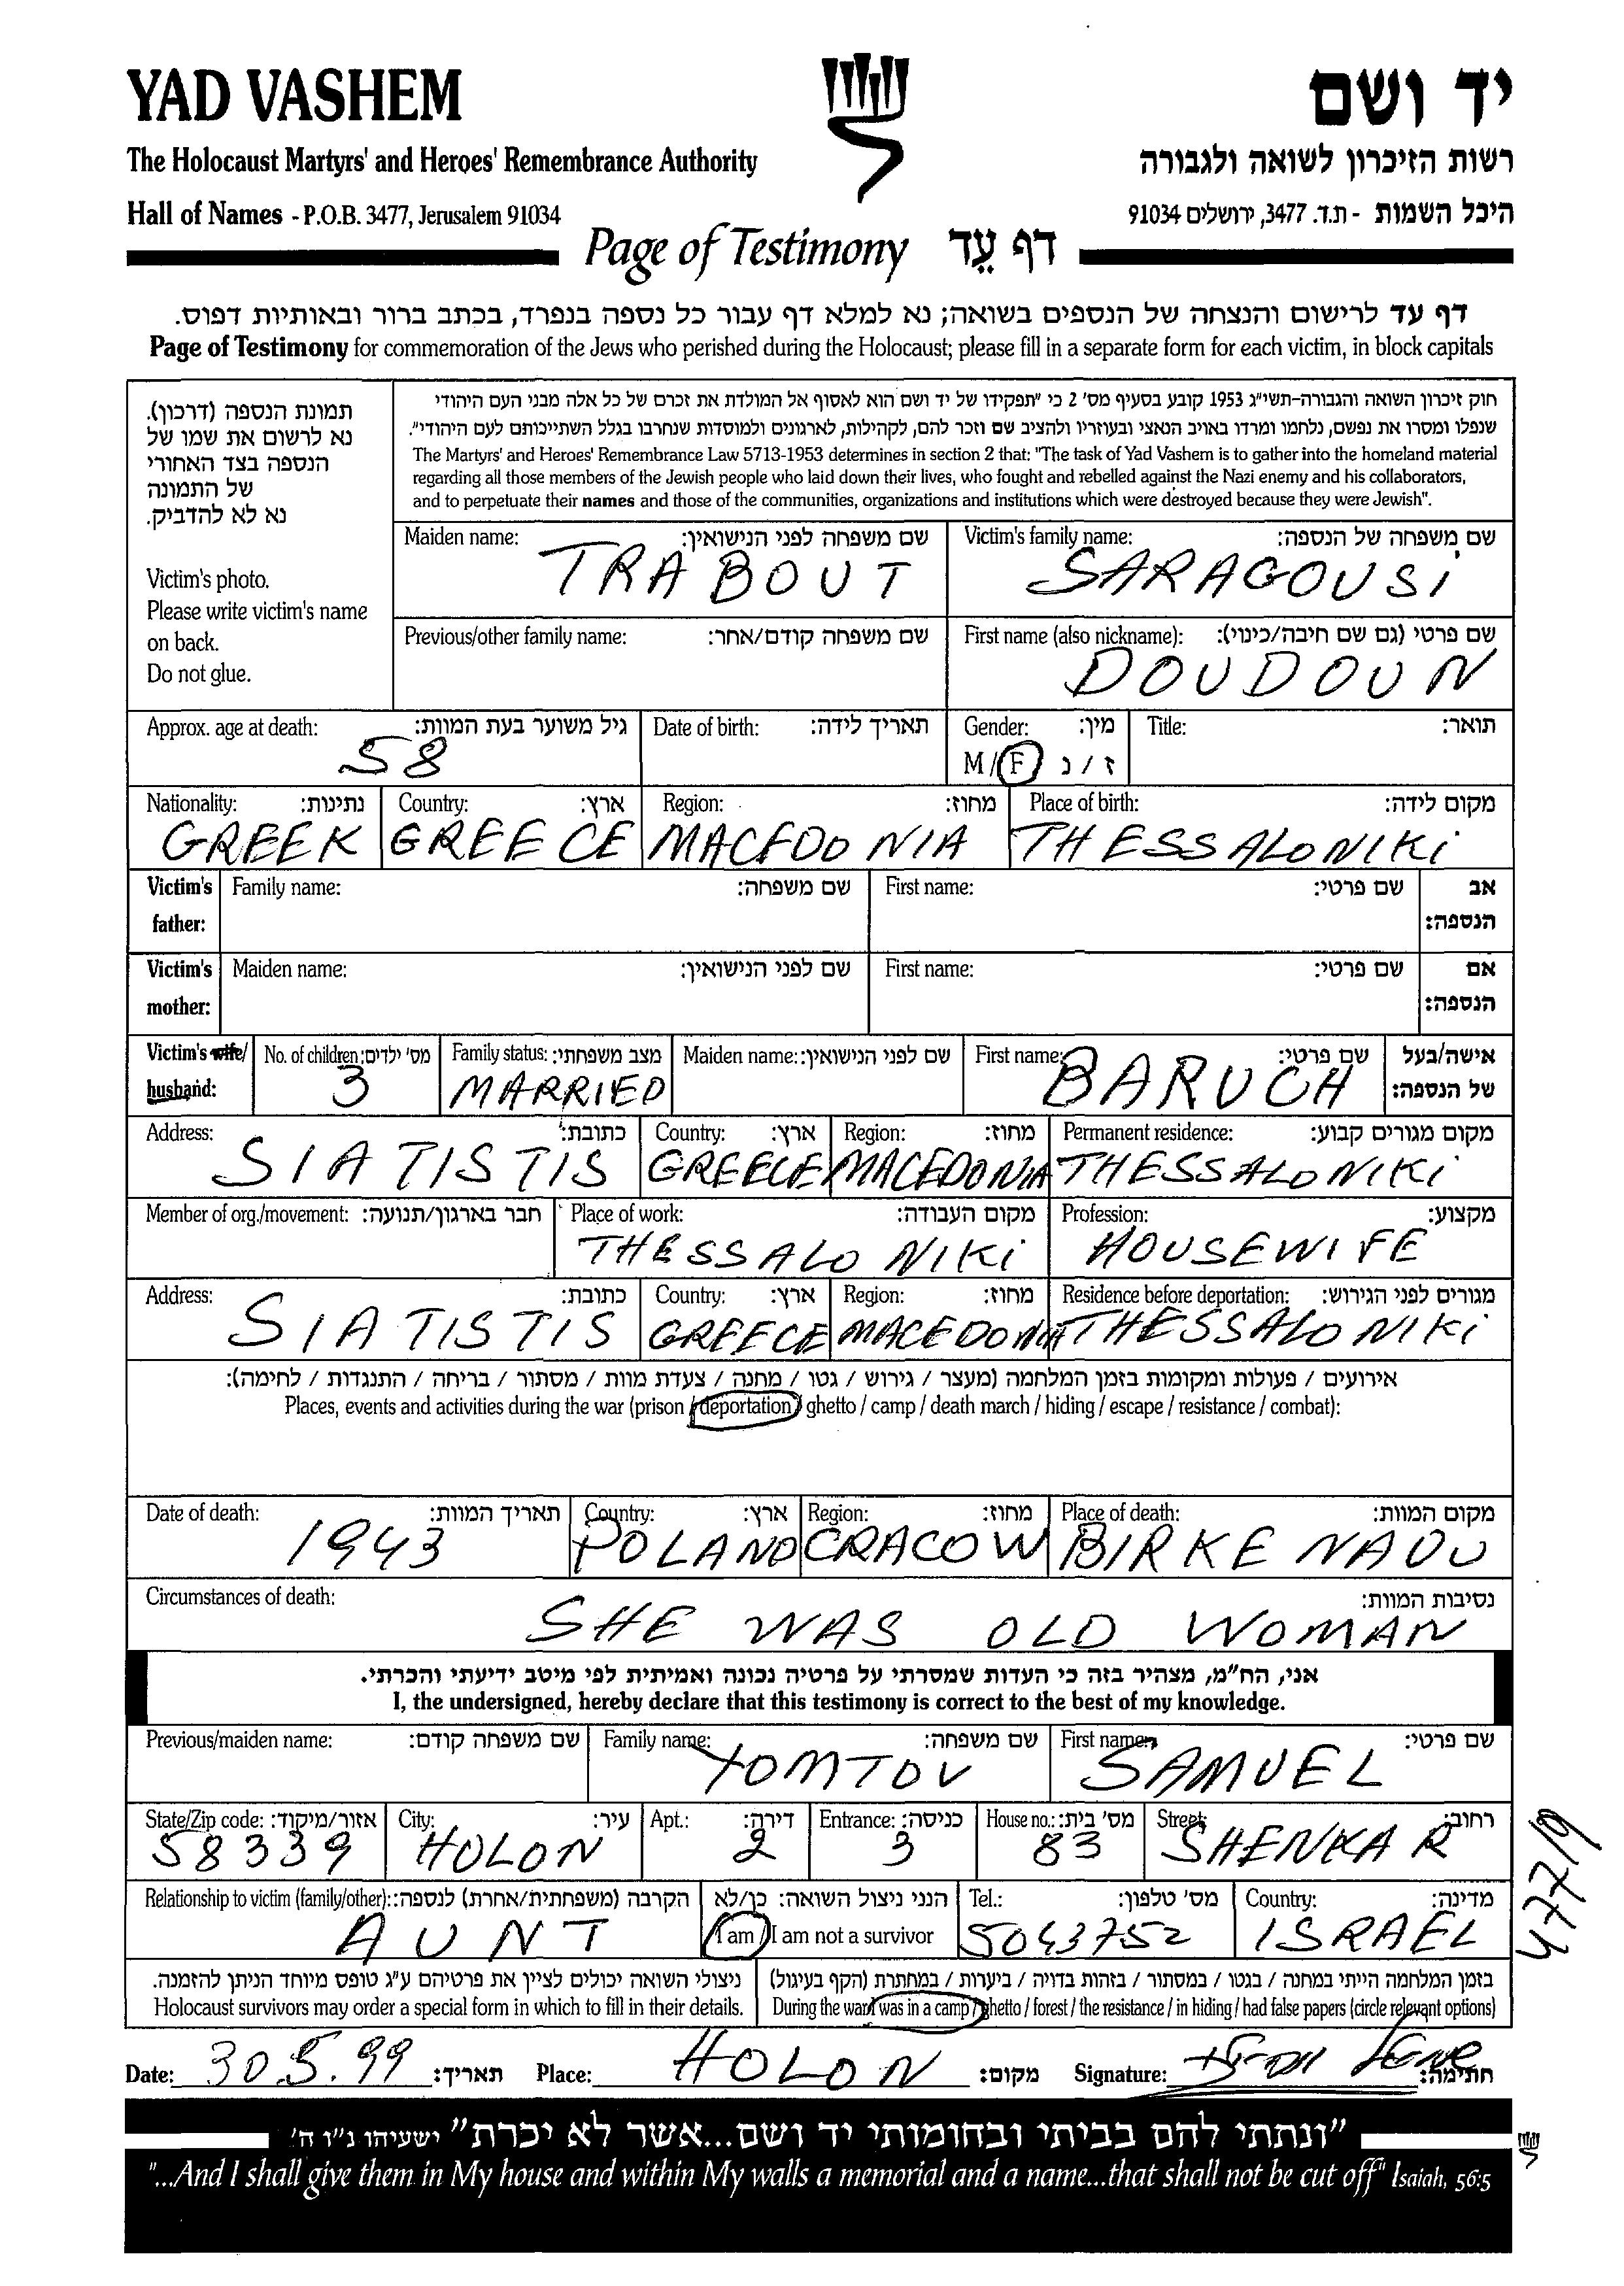 YAD VASHEM
יד ושם
The Holocaust Martyrs' and Heroes' Remembrance Authority
רשות הזיכרון לשואה ולגבורה
Hall of Names - P.O.B. 3477, Jerusalem 91034
היכל השמות - ת.ד. 3477, ירושלים 91034
Page of Testimony דף עֵד
דף עד לרישום והנצחה של הנספים בשואה; נא למלא דף עבור כל נספה בנפרד, בכתב ברור ובאותיות דפוס.
Page of Testimony for commemoration of the Jews who perished during the Holocaust; please fill in a separate form for each victim, in block capitals
תמונת הנספה (דרכון).
נא לרשום את שמו של
הנספה בצד האחורי
של התמונה
נא לא להדביק.
Victim's photo.
Please write victim's name
on back.
Do not glue.
חוק זיכרון השואה והגבורה-תשי"ג 1953 קובע בסעיף מס' 2 כי "תפקידו של יד ושם הוא לאסוף אל המולדת את זכרם של כל אלה מבני העם היהודי
שנפלו ומסרו את נפשם, נלחמו ומרדו באויב הנאצי ובעוזריו ולהציב שם וזכר להם, לקהילות, לארגונים ולמוסדות שנחרבו בגלל השתייכותם לעם היהודי".
The Martyrs' and Heroes' Remembrance Law 5713-1953 determines in section 2 that: "The task of Yad Vashem is to gather into the homeland material
regarding all those members of the Jewish people who laid down their lives, who fought and rebelled against the Nazi enemy and his collaborators,
and to perpetuate their names and those of the communities, organizations and institutions which were destroyed because they were Jewish".
Maiden name: שם משפחה לפני הנישואין: Victim's family name: שם משפחה של הנספה:
TRABOUT SARAGOUSi
Previous/other family name: שם משפחה קודם/אחר: First name (also nickname): שם פרטי (גם שם חיבה/כינוי):
DOUDOUN
Approx. age at death: גיל משוער בעת המוות: Date of birth: תאריך לידה: Gender: מין: Title: תואר:
58 M / F ז / נ
Nationality: נתינות: Country: ארץ: Region: מחוז: Place of birth: מקום לידה:
GREEK GREECE MACEDONIA THESSALONIKi
Victim's father: Family name: שם משפחה: First name: שם פרטי: אב הנספה:
Victim's mother: Maiden name: שם לפני הנישואין: First name: שם פרטי: אם הנספה:
Victim's wife/ husband: No. of children: מס' ילדים: Family status: מצב משפחתי: Maiden name: שם לפני הנישואין: First name: שם פרטי: אישה/בעל של הנספה:
3 MARRIED BARUCH
Address: כתובת: Country: ארץ: Region: מחוז: Permanent residence: מקום מגורים קבוע:
SIATISTIS GREECE MACEDONIA THESSALONIKi
Member of org./movement: חבר בארגון/תנועה: Place of work: מקום העבודה: Profession: מקצוע:
THESSALONIKi HOUSEWIFE
Address: כתובת: Country: ארץ: Region: מחוז: Residence before deportation: מגורים לפני הגירוש:
SIATISTIS GREECE MACEDONIA THESSALONIKi
אירועים / פעולות ומקומות בזמן המלחמה (מעצר / גירוש / גטו / מחנה / צעדת מוות / מסתור / בריחה / התנגדות / לחימה):
Places, events and activities during the war (prison / deportation / ghetto / camp / death march / hiding / escape / resistance / combat):
Date of death: תאריך המוות: Country: ארץ: Region: מחוז: Place of death: מקום המוות:
1943 POLAND CRACOW BIRKENAOU
Circumstances of death: נסיבות המוות:
SHE WAS OLD WOMAN
אני, הח"מ, מצהיר בזה כי העדות שמסרתי על פרטיה נכונה ואמיתית לפי מיטב ידיעתי והכרתי.
I, the undersigned, hereby declare that this testimony is correct to the best of my knowledge.
Previous/maiden name: שם משפחה קודם: Family name: שם משפחה: First name: שם פרטי:
YOMTOV SAMUEL
State/Zip code: אזור/מיקוד: City: עיר: Apt.: דירה: Entrance: כניסה: House no.: מס' בית: Street: רחוב:
58339 HOLON 2 3 83 SHENKAR
Relationship to victim (family/other): הקרבה (משפחתית/אחרת) לנספה: הנני ניצול השואה: כן/לא Tel.: מס' טלפון: Country: מדינה:
AUNT I am / I am not a survivor 5043752 ISRAEL
ניצולי השואה יכולים לציין את פרטיהם ע"ג טופס מיוחד הניתן להזמנה.
Holocaust survivors may order a special form in which to fill in their details.
בזמן המלחמה הייתי במחנה / בגטו / במסתור / בזהות בדויה / ביערות / במחתרת (הקף בעיגול)
During the war I was in a camp / ghetto / forest / the resistance / in hiding / had false papers (circle relevant options)
47719
Date: 30.5.99 תאריך: Place: HOLON מקום: Signature: חתימה:
"ונתתי להם בביתי ובחומותי יד ושם...אשר לא יכרת" ישעיהו נ"ו ה'
"...And I shall give them in My house and within My walls a memorial and a name...that shall not be cut off" Isaiah, 56:5